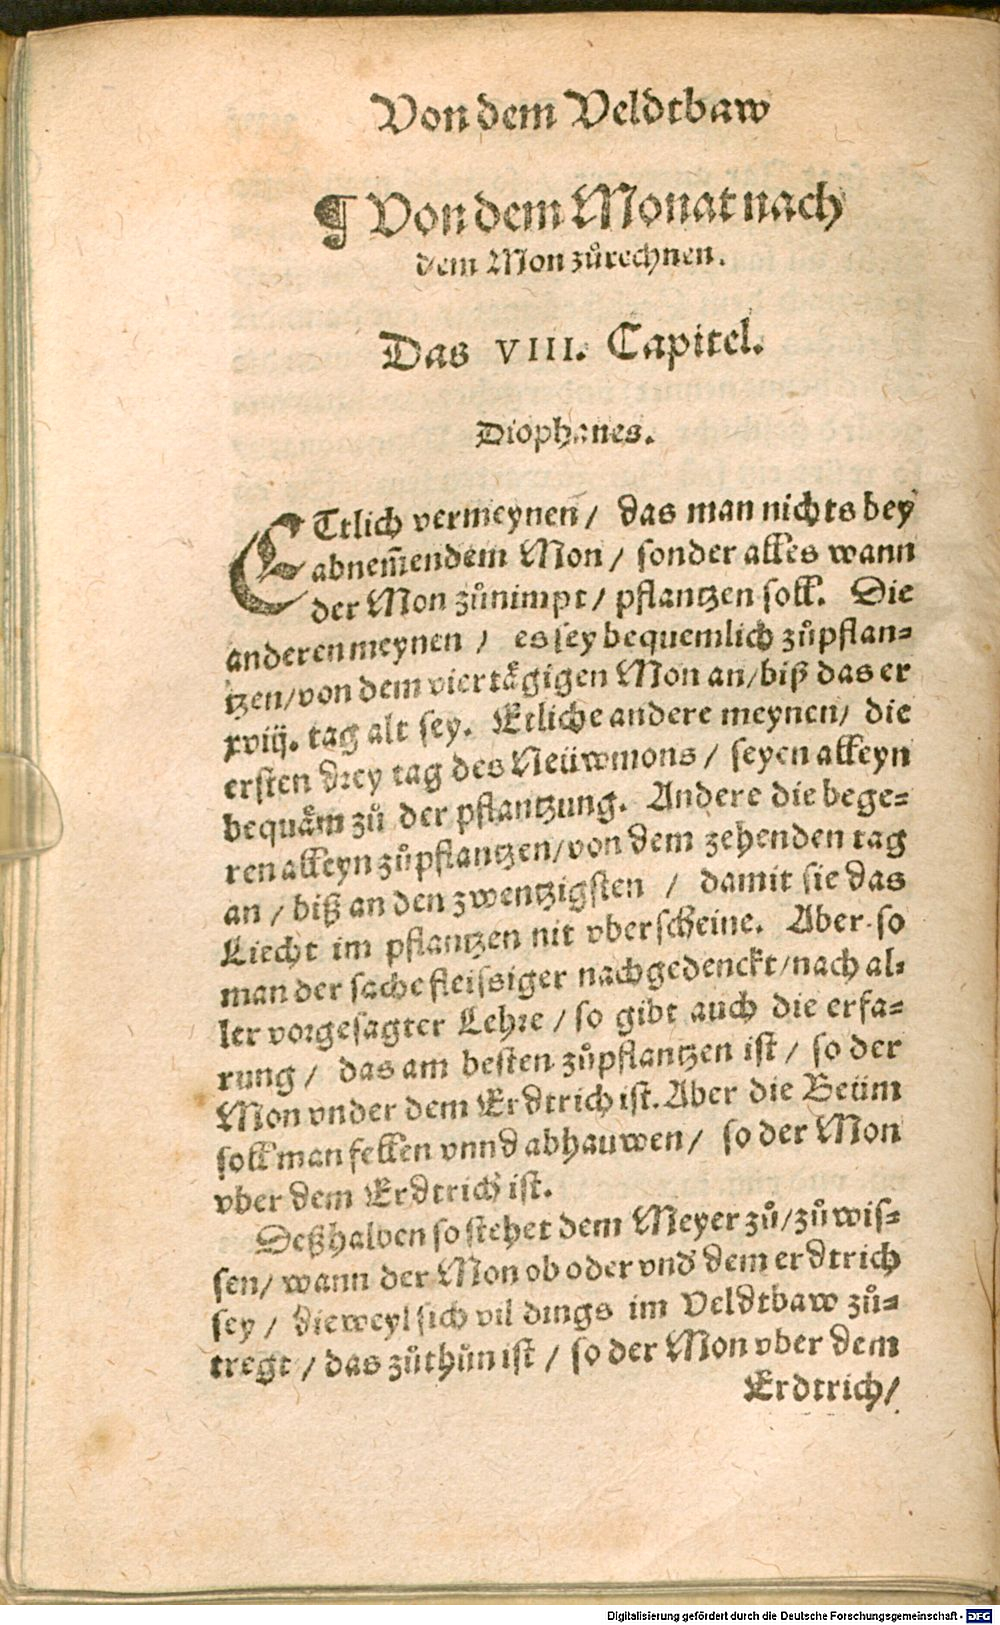 Von dem Veldtbaw
¶ Von dem Monat nach
dem Mon zůrechnen.
Das VIII. Capitel.
Diophanes.
ETtlich vermeynen / das man nichts bey
abnem̃endem Mon / sonder alles wann
der Mon zůnimpt / pflantzen soll. Die
anderen meynen / es sey bequemlich zůpflan-
tzen / von dem viertägigen Mon an / biß das er
xviij. tag alt sey. Etliche andere meynen / die
ersten drey tag des Neüwmons / seyen alleyn
bequäm zů der pflantzung. Andere die bege-
ren alleyn zůpflantzen / von dem zehenden tag
an / biß an den zwentzigsten / damit sie das
Liecht im pflantzen nit vberscheine. Aber so
man der sache fleissiger nachgedenckt / nach al-
ler vorgesagter Lehre / so gibt auch die erfa-
rung / das am besten zůpflantzen ist / so der
Mon vnder dem Erdtrich ist. Aber die Beüm
soll man fellen vnnd abhauwen / so der Mon
vber dem Erdtrich ist.
Deßhalben so stehet dem Meyer zů / zůwis-
sen / wann der Mon ob oder vnd' dem erdtrich
sey / dieweyl sich vil dings im Veldtbaw zů-
tregt / das zůthůn ist / so der Mon vber dem
Erdtrich /
Digitalisierung gefördert durch die Deutsche Forschungsgemeinschaft - DFG